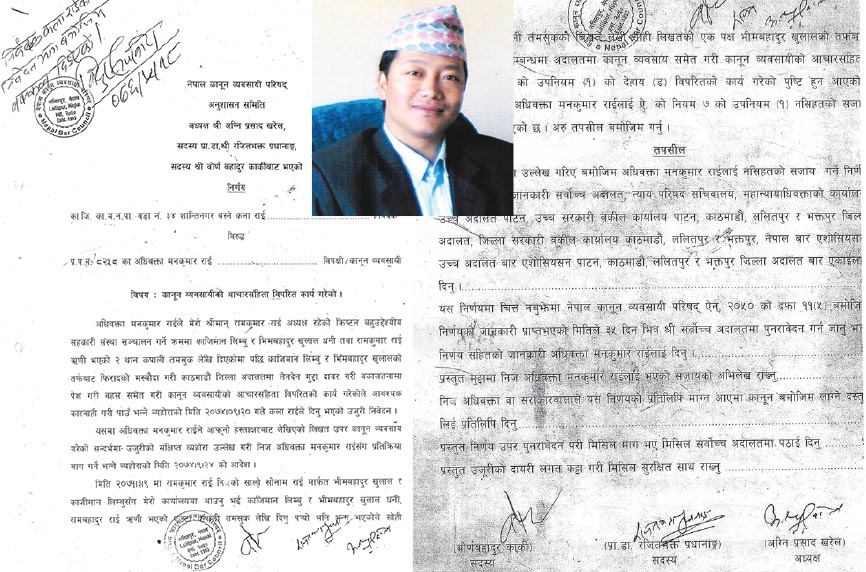 नेपाल कानून व्यवसायी परिषद्
अनुशासन समिति
अध्यक्ष श्री अग्नि प्रसाद खरेल,
सदस्य प्रा.डा.श्री रजितभक्त प्रधानाङ्ग,
सदस्य श्री बोर्ण बहादुर कार्कीबाट भएको
निर्णय
का.जि. का.म.न.पा. वडा नं. ३४ शान्तिनगर बस्ने कला राई
विरुद्ध
प्र.प.नं. ८२५८ का अधिवक्ता मनकुमार राई विपक्षी/कानून व्यवसायी
विषय : कानून व्यवसायीको आचारसंहिता विपरित कार्य गरेको ।
अधिवक्ता मनकुमार राईले मेरो श्रीमान् रामकुमार राई अध्यक्ष रहेको क्रिष्टल बहुउद्देश्यीय
सहकारी संस्था सञ्चालन गर्ने क्रममा काजिमान लिम्बु र भिमबहादुर खुलाल धनी तथा रामकुमार राई
ऋणी भएको २ थान कपाली तमसुक लेखि दिएकोमा पछि काजिमान लिम्बु र भिमबहादुर खुलालको
तर्फबाट फिरादको मस्यौदा गरी काठमाडौं जिल्ला अदालतमा लेनदेन मुद्दा दायर गरी वकालतनामा
पेश गरी बहस समेत गरी कानून व्यवसायीको आचारसंहिता विपरितको कार्य गरेकोले आवश्यक
कारवाही गरी पाउँ भन्ने व्यहोराको मिति २०७४।०९।२० गते कला राईले दिनु भएको उजुरी निवेदन ।
यसमा अधिवक्ता मनकुमार राईले आफूनो हस्ताक्षरबाट लेखिएको लिखत उपर कानून व्यवसाय
गरेको सन्दर्भमा उजुरीको संक्षिप्त व्यहोरा उल्लेख गरी निज अधिवक्ता मनकुमार राईसंग प्रतिक्रिया
माग गर्ने भन्ने व्यहोराको मिति २०७४।०९।२४ को आदेश ।
मिति २०७१।३।९ मा रामकुमार राई निजको सालो सोनाम राई मार्फत भीमबहादुर खुलाल र
काजीमान लिम्बुसँग मेरो कार्यालयमा आउनु भई काजिमान लिम्बु र भीमबहादुर खुलाल धनी,
रामबहादुर राई ऋणी भएको तमसुक लेखि दिनु पर्‍यो भनि भन्नु भएकोले सोही
तमसुकको लिखत लेखी सोही लिखतको एक पक्ष भीमबहादुर खुलालको तर्फबाट
सम्बन्धमा अदालतमा कानून व्यवसाय समेत गरी कानून व्यवसायीको आचारसंहिता
को उपनियम (१) को देहाय (ड) विपरितको कार्य गरेको पुष्टि हुन आएको
अधिवक्ता मनकुमार राईलाई ऐ. को नियम ७ को उपनियम (१) नसिहतको सजाय
एको छ । अरु तपसील बमोजिम गर्नु ।
तपसील
उल्लेख गरिए बमोजिम अधिवक्ता मनकुमार राईलाई नसिहतको सजाय गर्ने निर्णय
जानकारी सर्वोच्च अदालत, न्याय परिषद सचिवालय, महान्यायाधिवक्ताको कार्यालय
उच्च अदालत पाटन, उच्च सरकारी वकील कार्यालय पाटन, काठमाडौं, ललितपुर र भक्तपुर जिल्ला
अदालत, जिल्ला सरकारी वकील कार्यालय काठमाडौं, ललितपुर र भक्तपुर, नेपाल बार एशोसियसन
उच्च अदालत बार एशोसियसन पाटन, काठमाडौं, ललितपुर र भक्तपुर जिल्ला अदालत बार एकाईलाई
दिनु ।
यस निर्णयमा चित्त नबुझेमा नेपाल कानून व्यवसायी परिषद् ऐन, २०५० को दफा ११(५) बमोजिम
निर्णयको जानकारी प्राप्तभएको मितिले ३५ दिन भित्र श्री सर्वोच्च अदालतमा पुनरावेदन गर्न जानु भनी
निर्णय सहितको जानकारी अधिवक्ता मनकुमार राईलाई दिनु ।
प्रस्तुत मुद्दामा निज अधिवक्ता मनकुमार राईलाई भएको सजायको अभिलेख राख्नु
निज अधिवक्ता वा सरोकारवालाले यस निर्णयको प्रतिलिपि माग्न आएमा कानून बमोजिम लाग्ने दस्तुर
लिई प्रतिलिपि दिनु
प्रस्तुत निर्णय उपर पुनरावेदन परी मिसिल माग भए मिसिल सर्वोच्च अदालतमा पठाई दिनु
प्रस्तुत उजूरीको दायरी लगत कट्टा गरी मिसिल सुरक्षित साथ राख्नु
(बोर्णबहादुर कार्की) (प्रा.डा. रजितभक्त प्रधानाङ्ग) (अग्नि प्रसाद खरेल)
सदस्य सदस्य अध्यक्ष